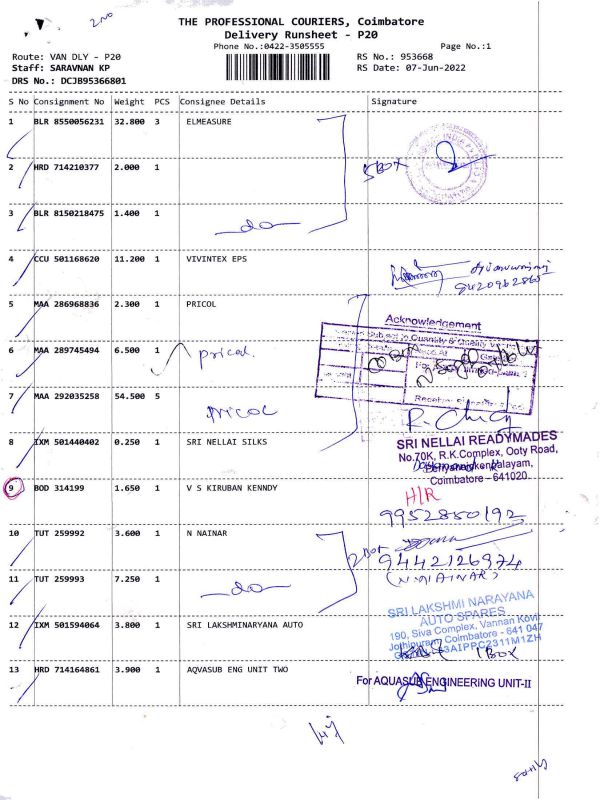 2 NO
THE PROFESSIONAL COURIERS, Coimbatore
Delivery Runsheet - P20
Phone No.:0422-3505555
Page No.:1
Route: VAN DLY - P20
RS No.: 953668
Staff: SARAVNAN KP
RS Date: 07-Jun-2022
DRS No.: DCJB95366801
S No Consignment No Weight PCS Consignee Details Signature
1 BLR 8550056231 32.800 3 ELMEASURE
2 HRD 714210377 2.000 1
5 BOX
3 BLR 8150218475 1.400 1 do
4 CCU 501168620 11.200 1 VIVINTEX EPS
5 MAA 286968836 2.300 1 PRICOL
Acknowledgement
6 MAA 289745494 6.500 1 pricol.
7 MAA 292035258 54.500 5 pricol
8 IXM 501440402 0.250 1 SRI NELLAI SILKS
SRI NELLAI READYMADES
No.70K, R.K.Complex, Ooty Road,
Coimbatore - 641020
9 BOD 314199 1.650 1 V S KIRUBAN KENNDY
H/R
9952850192
10 TUT 259992 3.600 1 N NAINAR
2 BOX
9442126974
(N. NAINAR)
11 TUT 259993 7.250 1 do
SRI LAKSHMI NARAYANA
AUTO SPARES
190, Siva Complex, Vannan Kovil
Jothipuram Coimbatore - 641 047
12 IXM 501594064 3.800 1 SRI LAKSHMINARYANA AUTO
1 BOX
13 HRD 714164861 3.900 1 AQVASUB ENG UNIT TWO
For AQUASUB ENGINEERING UNIT-II